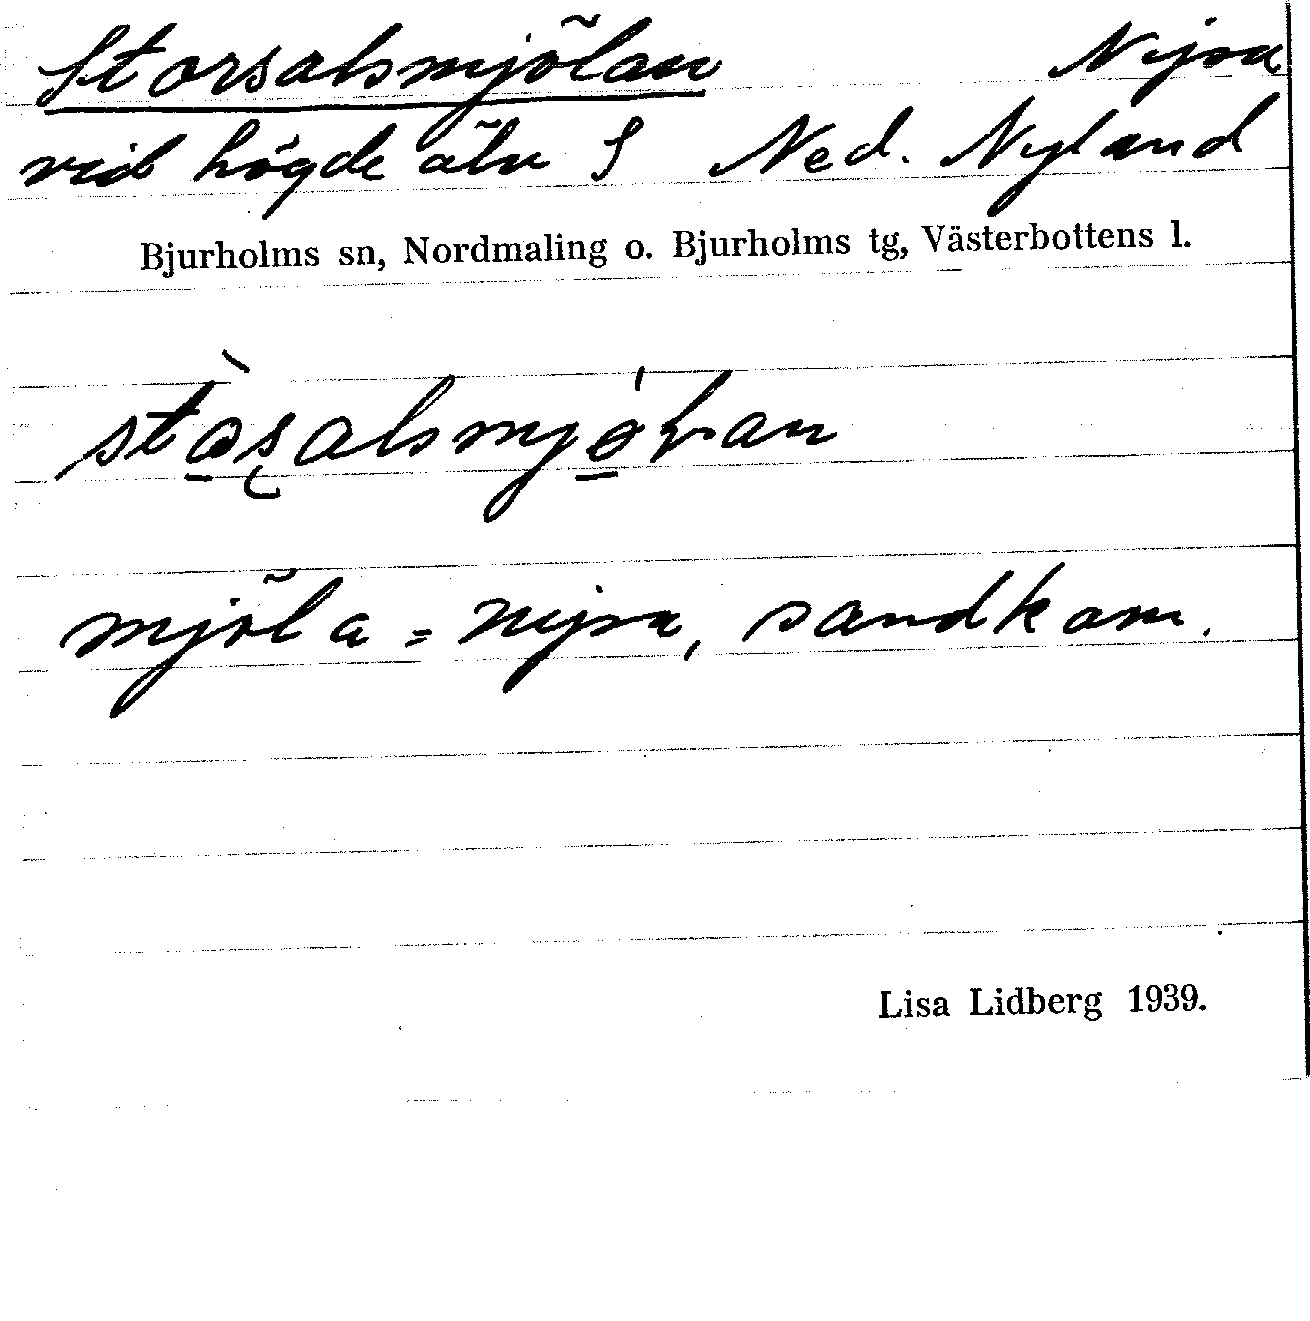 Storsalsmjölan Nipa
vid högde älv S Ned. Nyland
Bjurholms sn, Nordmaling o. Bjurholms tg, Västerbottens l.
mjöla = nipa, sandkam.
Lisa Lidberg 1939.